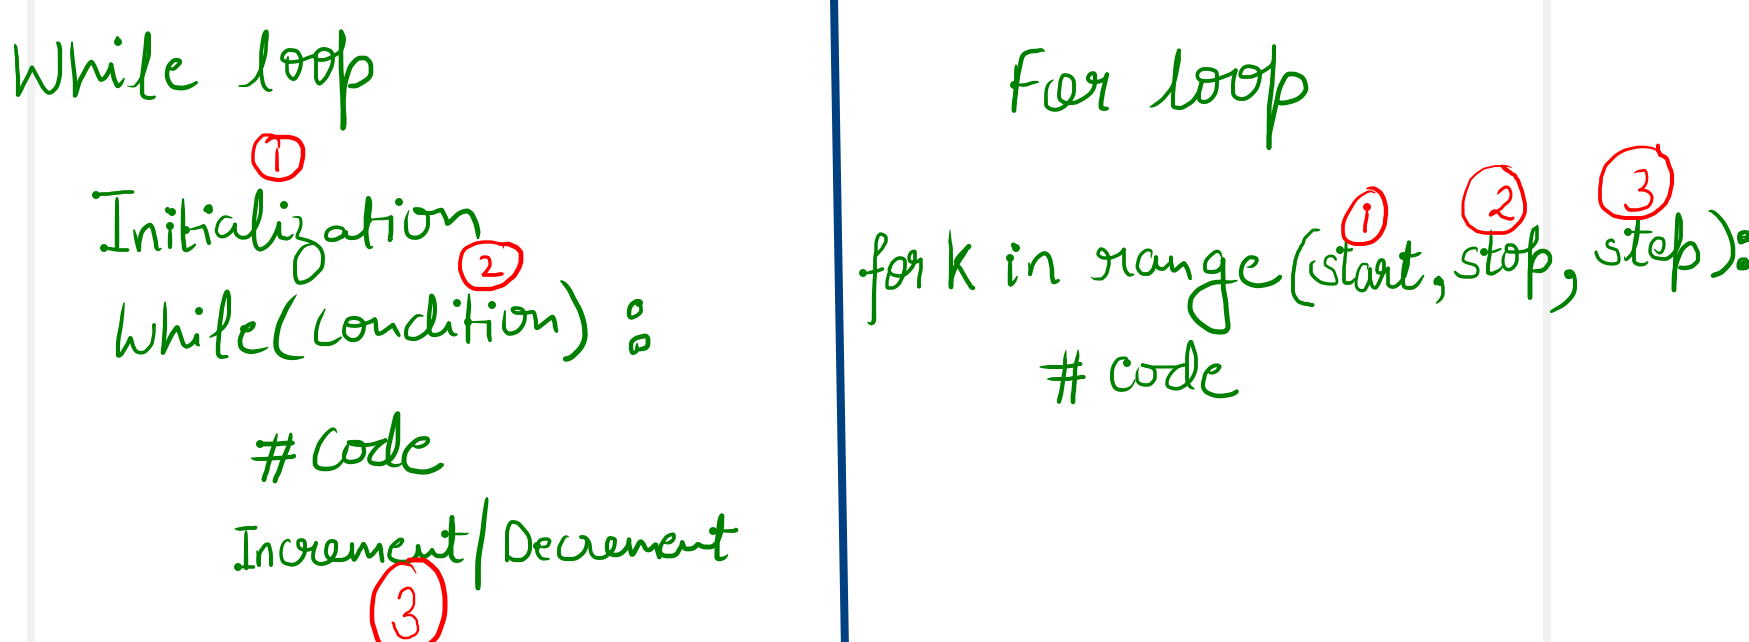 While loop
1
Initialization
2
While(condition) :
# code
Increment/Decrement
3
For loop
1 2 3
for k in range(start, stop, step):
# code